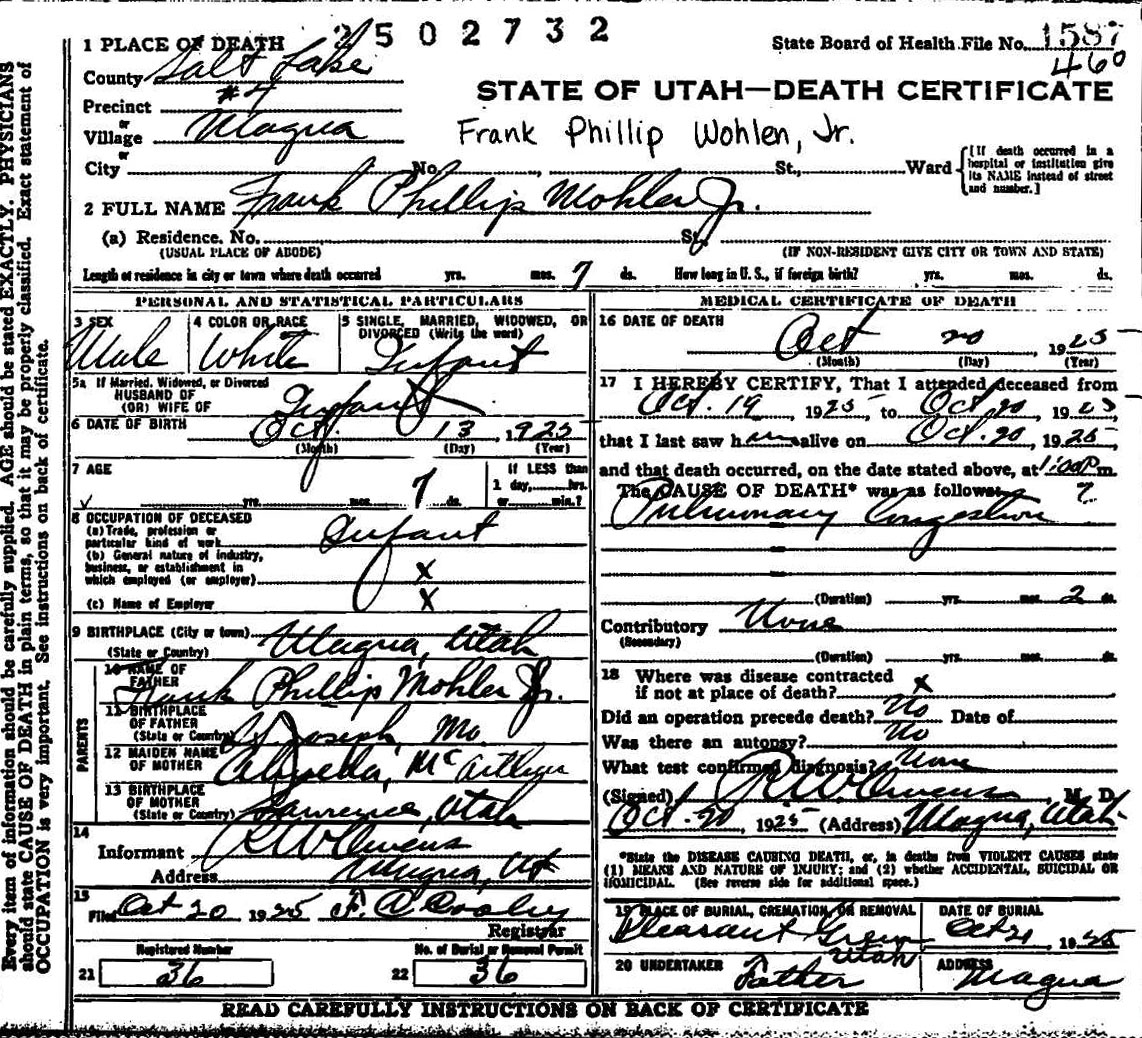 2502732
1 PLACE OF DEATH
State Board of Health File No. 1587
460
County Salt Lake
STATE OF UTAH—DEATH CERTIFICATE
Precinct #4
or
Village Magna
Frank Phillip Wohlen, Jr.
or
City No. , St., Ward
[If death occurred in a hospital or institution give its NAME instead of street and number.]
2 FULL NAME Frank Phillip Mohler Jr.
(a) Residence. No. St.
(USUAL PLACE OF ABODE) (IF NON-RESIDENT GIVE CITY OR TOWN AND STATE)
Length of residence in city or town where death occurred yrs. mos. 7 ds. How long in U. S., if foreign birth? yrs. mos. ds.
PERSONAL AND STATISTICAL PARTICULARS
3 SEX Male
4 COLOR OR RACE White
5 SINGLE, MARRIED, WIDOWED, OR
DIVORCED (Write the word)
Infant
5a If Married, Widowed, or Divorced
HUSBAND OF
(OR) WIFE OF Infant
6 DATE OF BIRTH Oct. 13, 1925
(Month) (Day) (Year)
7 AGE
yrs. mos. 7 ds.
If LESS than
1 day, hrs.
or min.?
8 OCCUPATION OF DECEASED
(a) Trade, profession or
particular kind of work Infant
(b) General nature of industry,
business, or establishment in
which employed (or employer) x
(c) Name of Employer x
9 BIRTHPLACE (City or town)
(State or Country) Magna, Utah
PARENTS
10 NAME OF
FATHER Frank Phillip Mohler Jr.
11 BIRTHPLACE
OF FATHER
(State or Country) St Joseph, Mo
12 MAIDEN NAME
OF MOTHER
13 BIRTHPLACE
OF MOTHER
(State or Country) Lawrence, Utah
14
Informant R W Owens
Address Magna, Ut
15
Filed Oct 20 1925
Registrar
Registered Number
21 36
No. of Burial or Removal Permit
22 36
MEDICAL CERTIFICATE OF DEATH
16 DATE OF DEATH
Oct 20, 1925
(Month) (Day) (Year)
17 I HEREBY CERTIFY, That I attended deceased from
Oct. 19, 1925 to Oct. 20, 1925
that I last saw him alive on Oct. 20, 1925
and that death occurred, on the date stated above, at 1:00 P m.
The CAUSE OF DEATH* was as follows: ?
Pulmonary Congestion
(Duration) yrs. mos. 2 ds.
Contributory None
(Secondary)
(Duration) yrs. mos. ds.
18 Where was disease contracted
if not at place of death? x
Did an operation precede death? No Date of
Was there an autopsy? No
What test confirmed diagnosis? None
(Signed) R W Owens, M. D.
Oct. 20, 1925 (Address) Magna, Utah
*State the DISEASE CAUSING DEATH, or, in deaths from VIOLENT CAUSES state
(1) MEANS AND NATURE OF INJURY; and (2) whether ACCIDENTAL, SUICIDAL OR
HOMICIDAL. (See reverse side for additional space.)
19 PLACE OF BURIAL, CREMATION, OR REMOVAL
Pleasant Green
Utah
DATE OF BURIAL
Oct 21, 1925
20 UNDERTAKER
Father
ADDRESS
Magna
READ CAREFULLY INSTRUCTIONS ON BACK OF CERTIFICATE
Every item of information should be carefully supplied. AGE should be stated EXACTLY. PHYSICIANS
should state CAUSE OF DEATH in plain terms, so that it may be properly classified. Exact statement of
OCCUPATION is very important. See instructions on back of certificate.